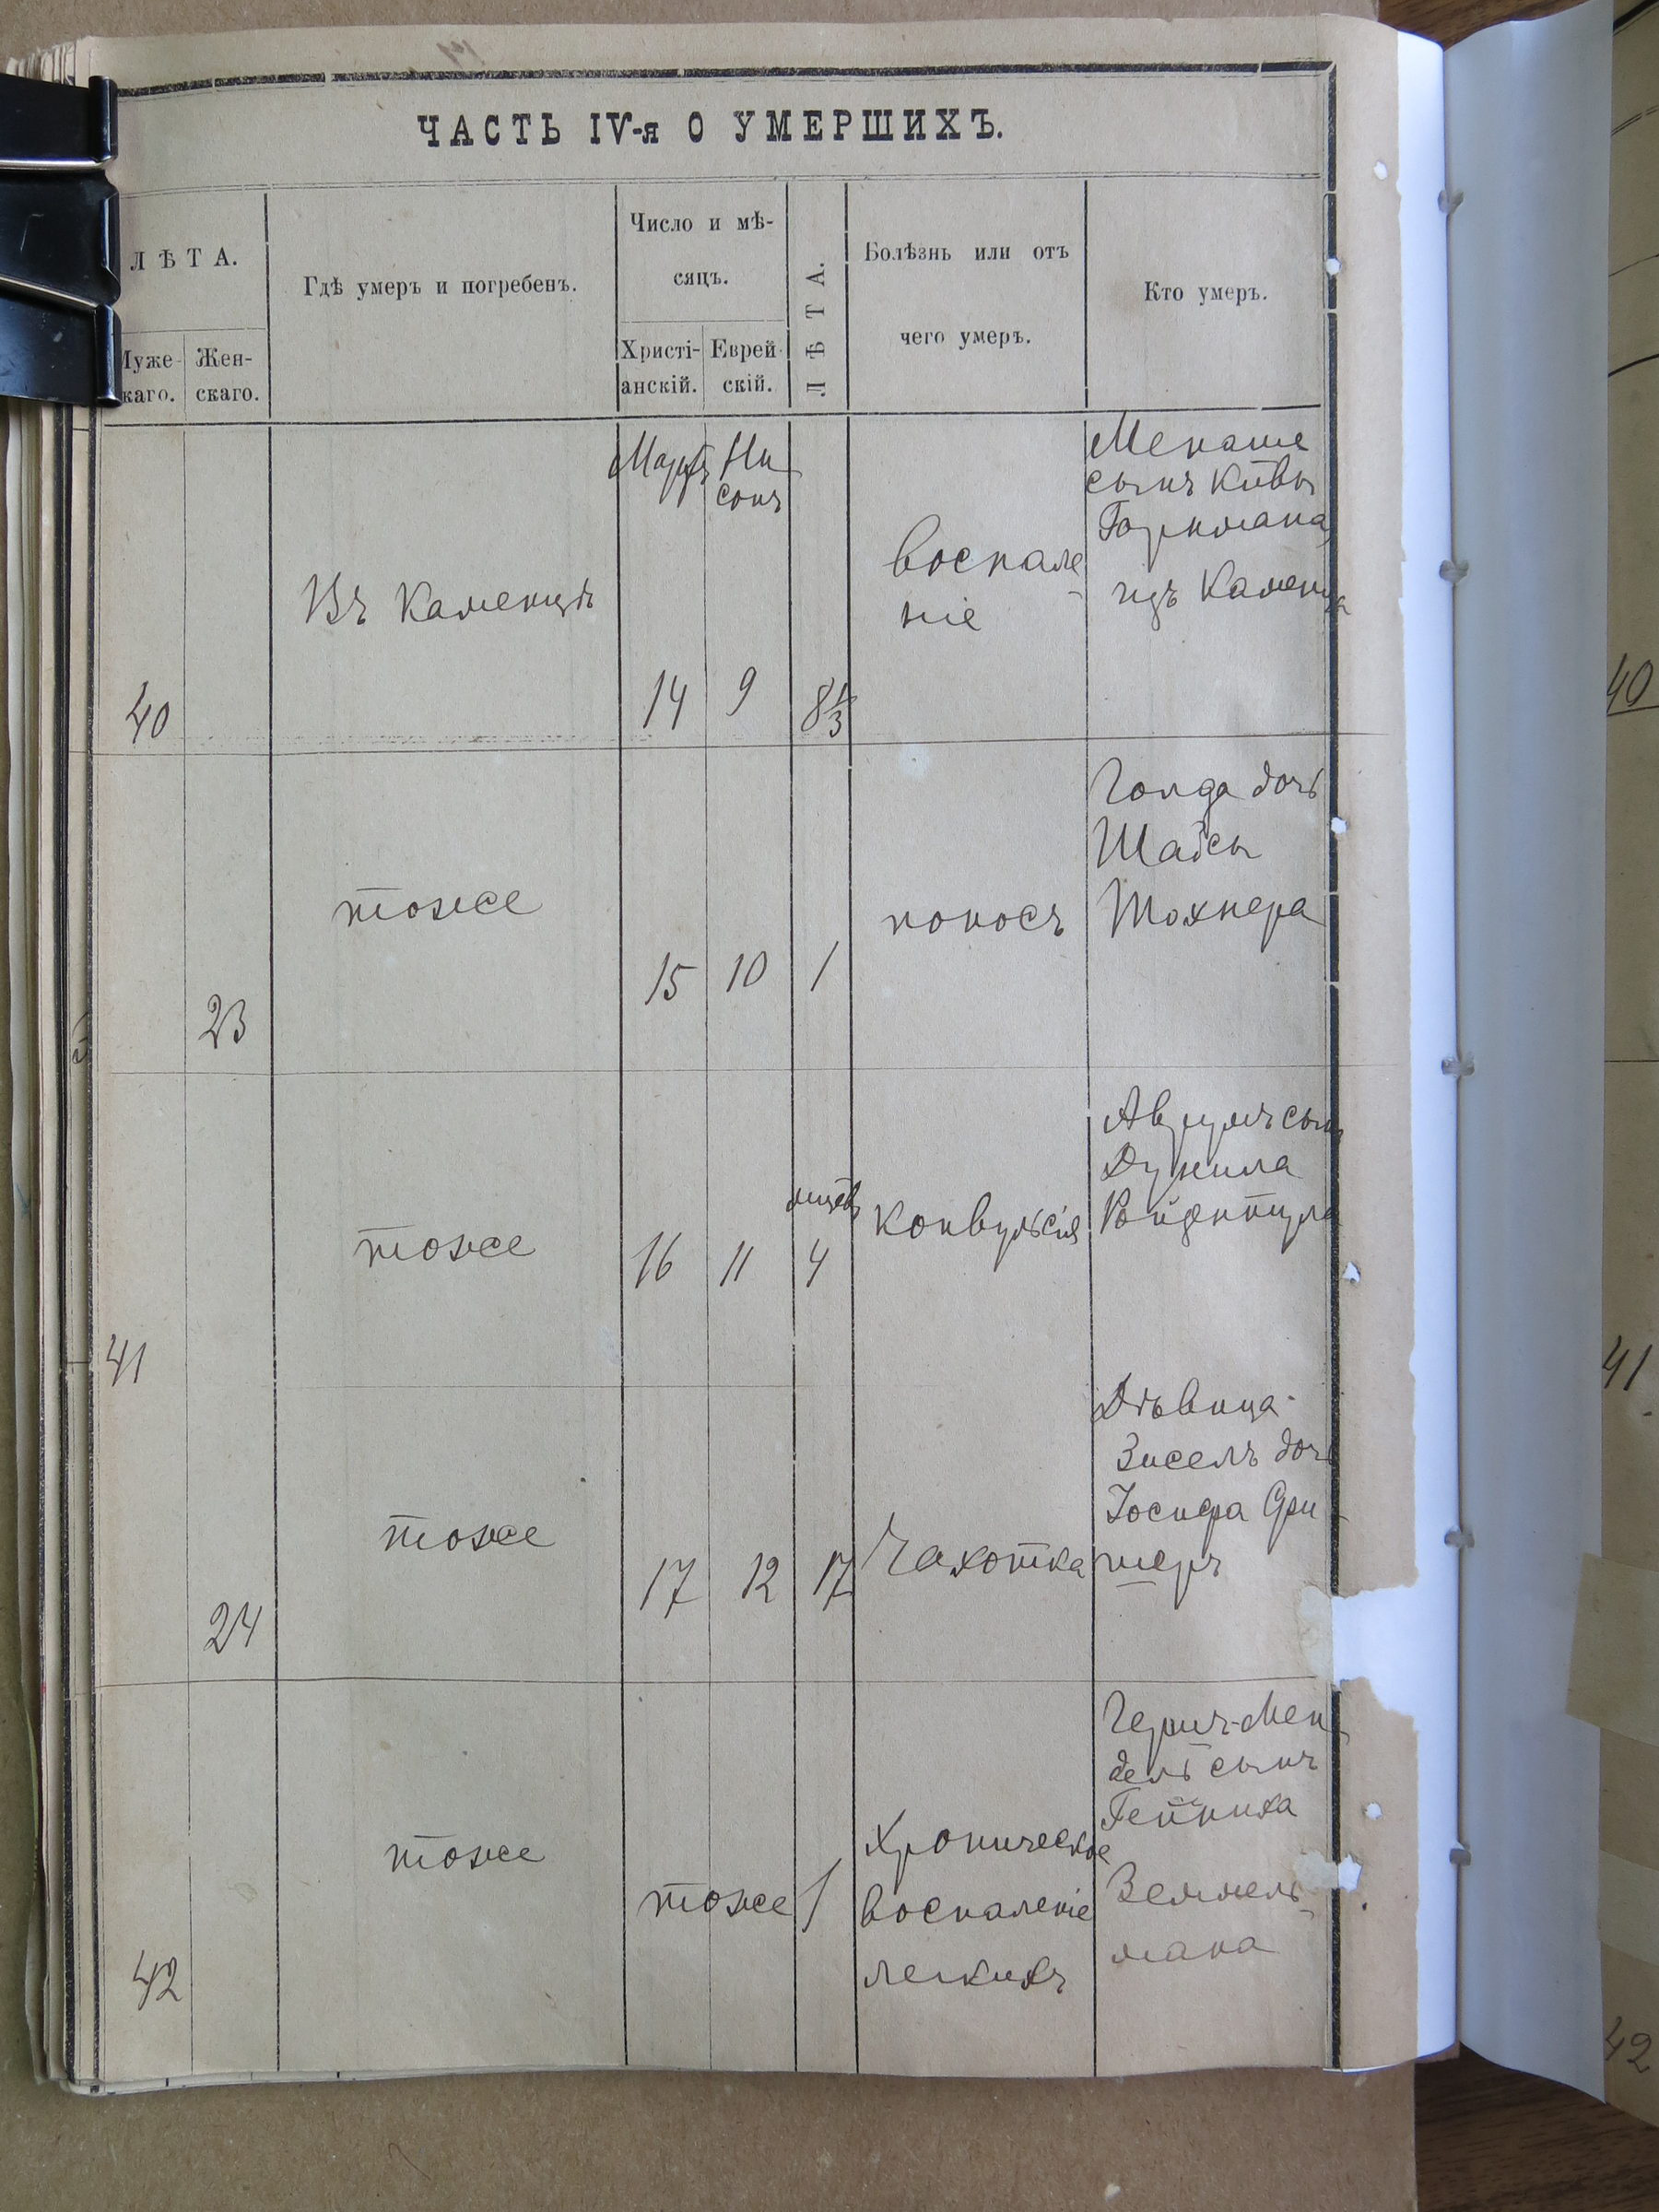 ЧАСТЬ IV-я О УМЕРШИХЪ.
ЛѢТА.
Муже-
скаго.
Жен-
скаго.
Гдѣ умеръ и погребенъ.
Число и мѣ-
сяцъ.
Христі-
анскій.
Еврей-
скій.
ЛѢТА.
Болѣзнь или отъ
чего умеръ.
Кто умеръ.
40
Въ Каменцѣ
Мартъ
14
Ни
сонъ
9
8 1/3
воспале-
ніе
Менаше
сынъ Кивы
Гаркмана
изъ Каменца
23
тоже
15
10
1
поносъ
Голда дочь
Шайсы
Тохнера
41
тоже
16
11
мцевъ
4
конвульсія
Аврумъ сынъ
Душила
Ройдентула
24
тоже
17
12
17
Чахотка
Дѣвица
Зисель дочь
Іосифа Фри-
шеръ
42
тоже
тоже
1
Хроническое
воспаленіе
легкихъ
Гершъ-Мен-
дель сынъ
Гейниха
Земмель-
мана
40
41
42